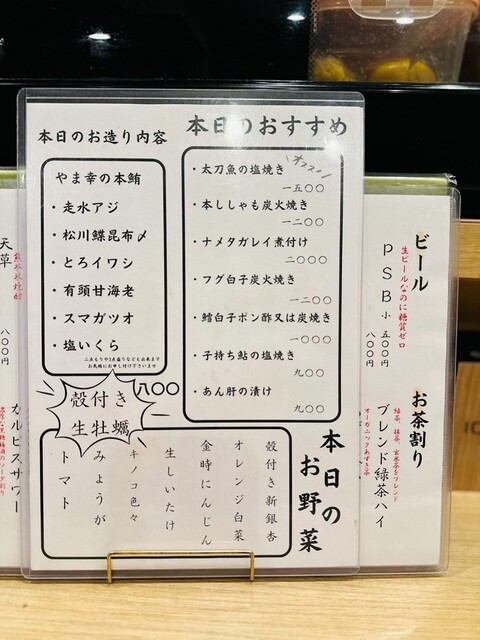 本日のおすすめ
・太刀魚の塩焼き
オススメ
一五〇〇
・本ししゃも炭火焼き
一二〇〇
・ナメタガレイ煮付け
二〇〇〇
・フグ白子炭火焼き
一二〇〇
・鱈白子ポン酢又は炭焼き
一〇〇〇
・子持ち鮎の塩焼き
九〇〇
・あん肝の漬け
九〇〇
本日のお造り内容
やま幸の本鮪
・走水アジ
・松川鰈昆布〆
・とろイワシ
・有頭甘海老
・スマガツオ
・塩いくら
二点もりや3点盛りなども出来ます
お気軽にお申し付け下さいませ
殻付き
生牡蠣
八〇〇
本日の
お野菜
殻付き新銀杏
オレンジ白菜
金時にんじん
生しいたけ
キノコ色々
みょうが
トマト
ビール
生ビールなのに糖質ゼロ
PSB 小 五〇〇円
八〇〇円
お茶割り
緑茶、抹茶、玄米茶をブレンド
ブレンド緑茶ハイ
オーガニックあずき茶
天草
八〇〇円
カルピスサワー